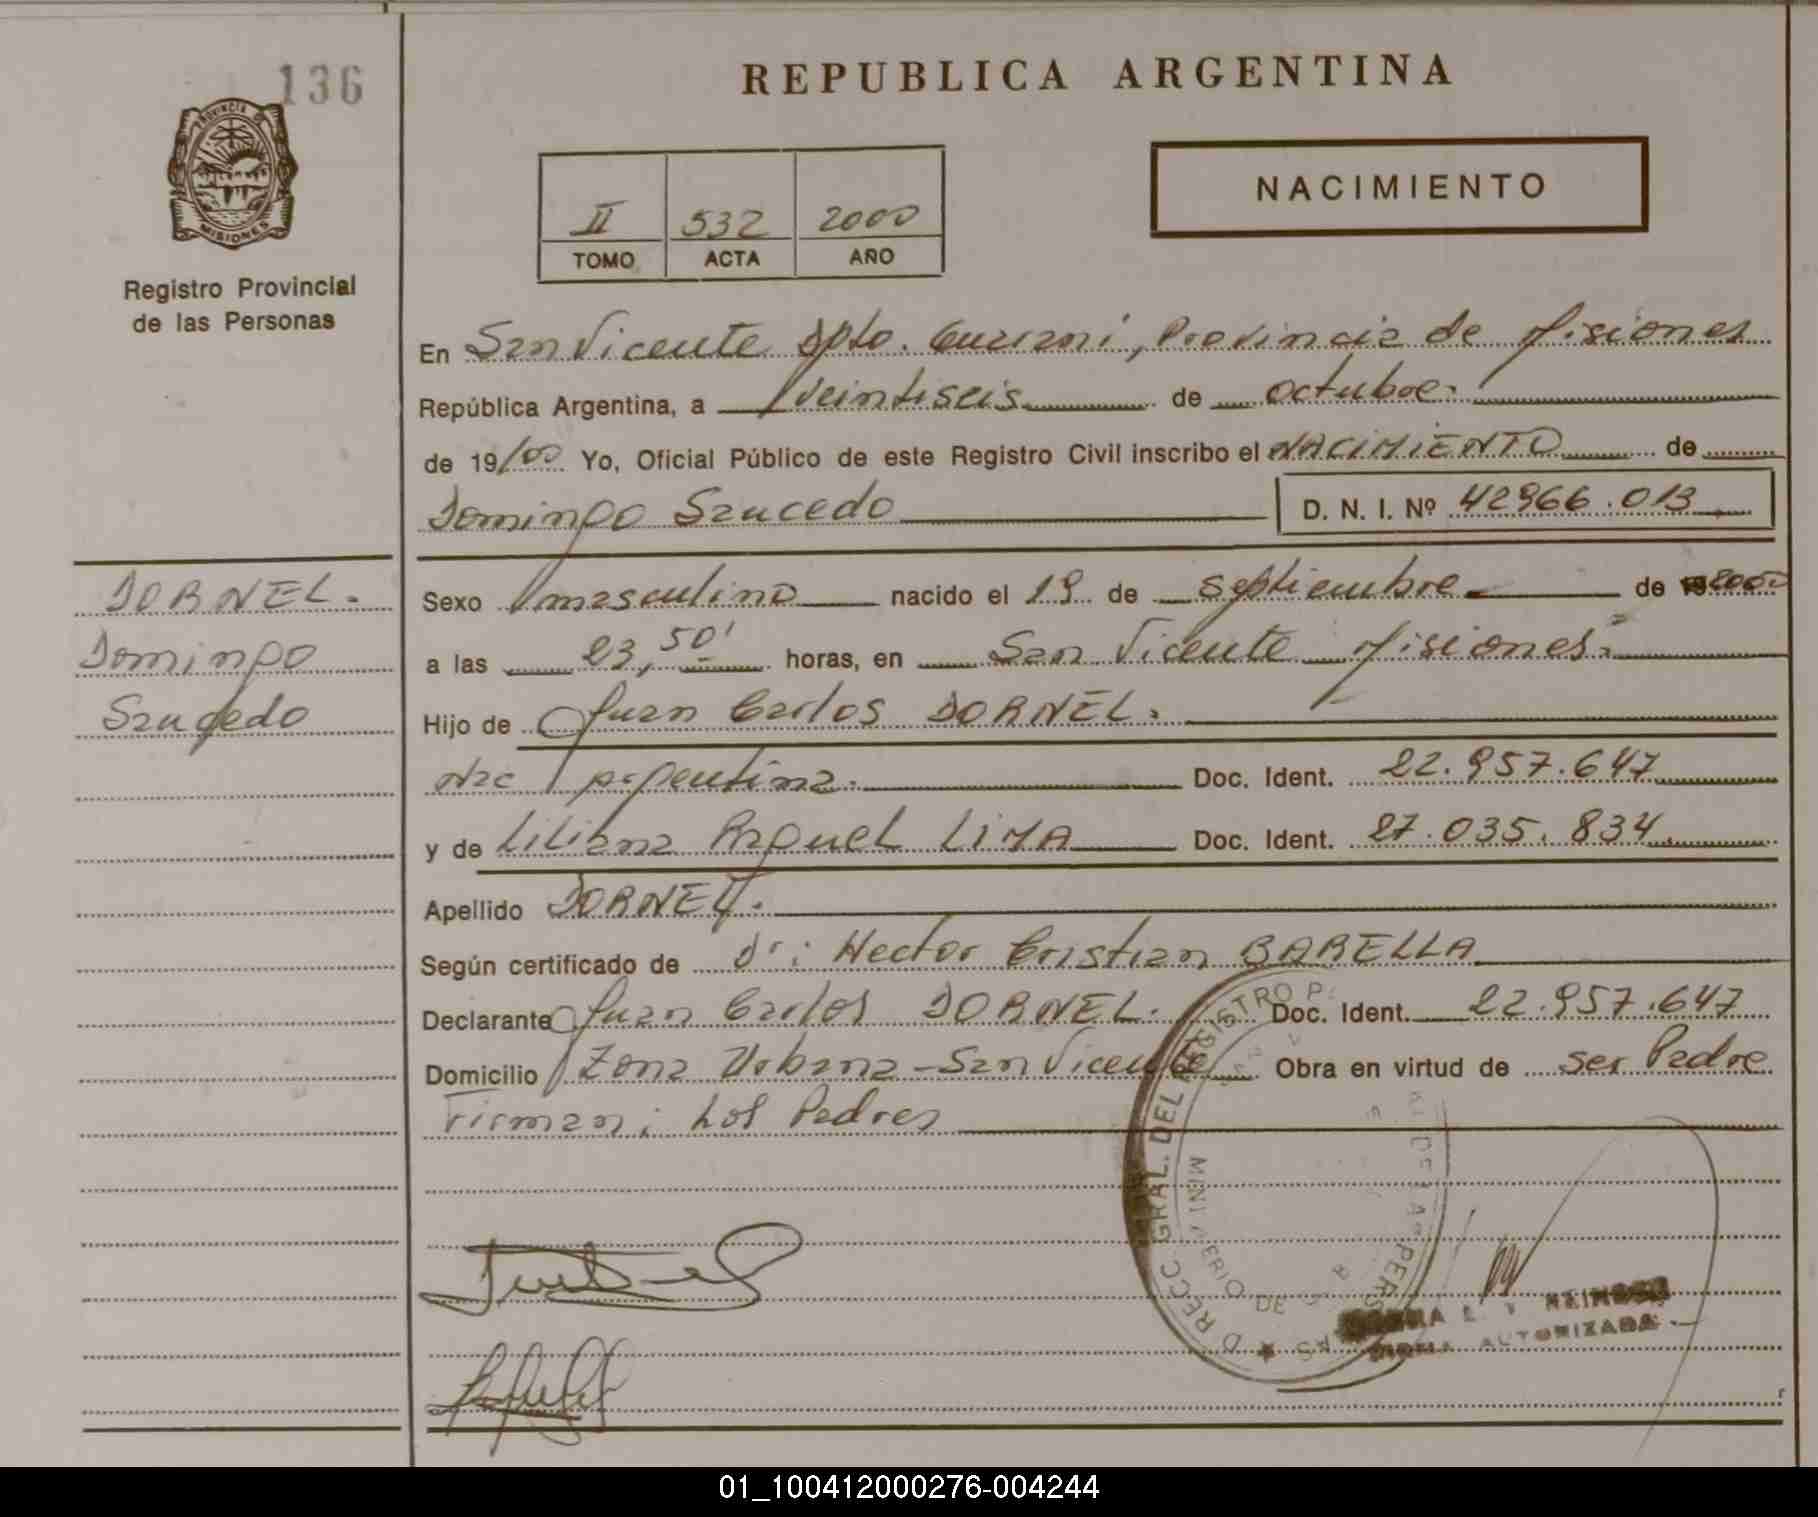 136
PROVINCIA DE
MISIONES
Registro Provincial
de las Personas
REPUBLICA ARGENTINA
II 532 2000
TOMO ACTA AÑO
NACIMIENTO
En San Vicente Dpto. Guarani, Provincia de Misiones
República Argentina, a veintiseis de octubre.
de 19/00 Yo, Oficial Público de este Registro Civil inscribo el NACIMIENTO de
Domingo Saucedo D. N. I. Nº 42966.013
DORNEL.
Domingo
Saucedo
Sexo masculino nacido el 19 de septiembre de 2000
a las 23,50' horas, en San Vicente Misiones.
Hijo de Juan Carlos DORNEL.
Nac Argentina. Doc. Ident. 22.957.647
y de Liliana Raquel LIMA Doc. Ident. 27.035.834
Apellido DORNEL.
Según certificado de Dr: Hector Cristian BARELLA
Declarante Juan Carlos DORNEL. Doc. Ident. 22.957.647
Domicilio Zona Urbana - San Vicente Obra en virtud de ser Padre
Firman; Los Padres
GRAL. DEL REGISTRO P.
DE LAS PERS
AUTORIZADA
01_100412000276-004244